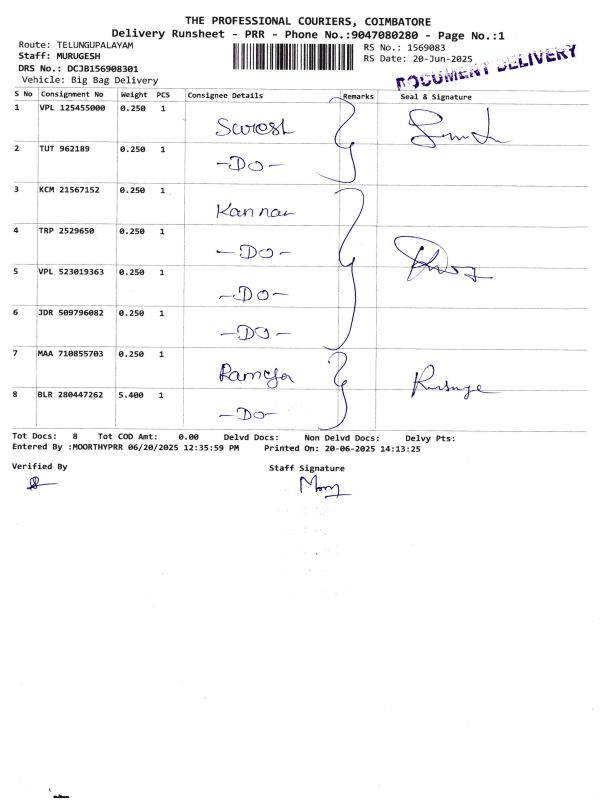 THE PROFESSIONAL COURIERS, COIMBATORE
Delivery Runsheet - PRR - Phone No.:9047080280 - Page No.:1
Route: TELUNGUPALAYAM
RS No.: 1569083
Staff: MURUGESH
RS Date: 20-Jun-2025
DRS No.: DCJB156908301
DOCUMENT DELIVERY
Vehicle: Big Bag Delivery
S No Consignment No Weight PCS Consignee Details Remarks Seal & Signature
1 VPL 125455000 0.250 1
Suresh
2 TUT 962189 0.250 1
-DO-
3 KCM 21567152 0.250 1
Kannan
4 TRP 2529650 0.250 1
-DO-
5 VPL 523019363 0.250 1
-DO-
6 JDR 509796082 0.250 1
-DO-
7 MAA 710855703 0.250 1
Ramya
8 BLR 280447262 5.400 1
-DO-
Tot Docs: 8 Tot COD Amt: 0.00 Delvd Docs: Non Delvd Docs: Delvy Pts:
Entered By :MOORTHYPRR 06/20/2025 12:35:59 PM Printed On: 20-06-2025 14:13:25
Verified By Staff Signature